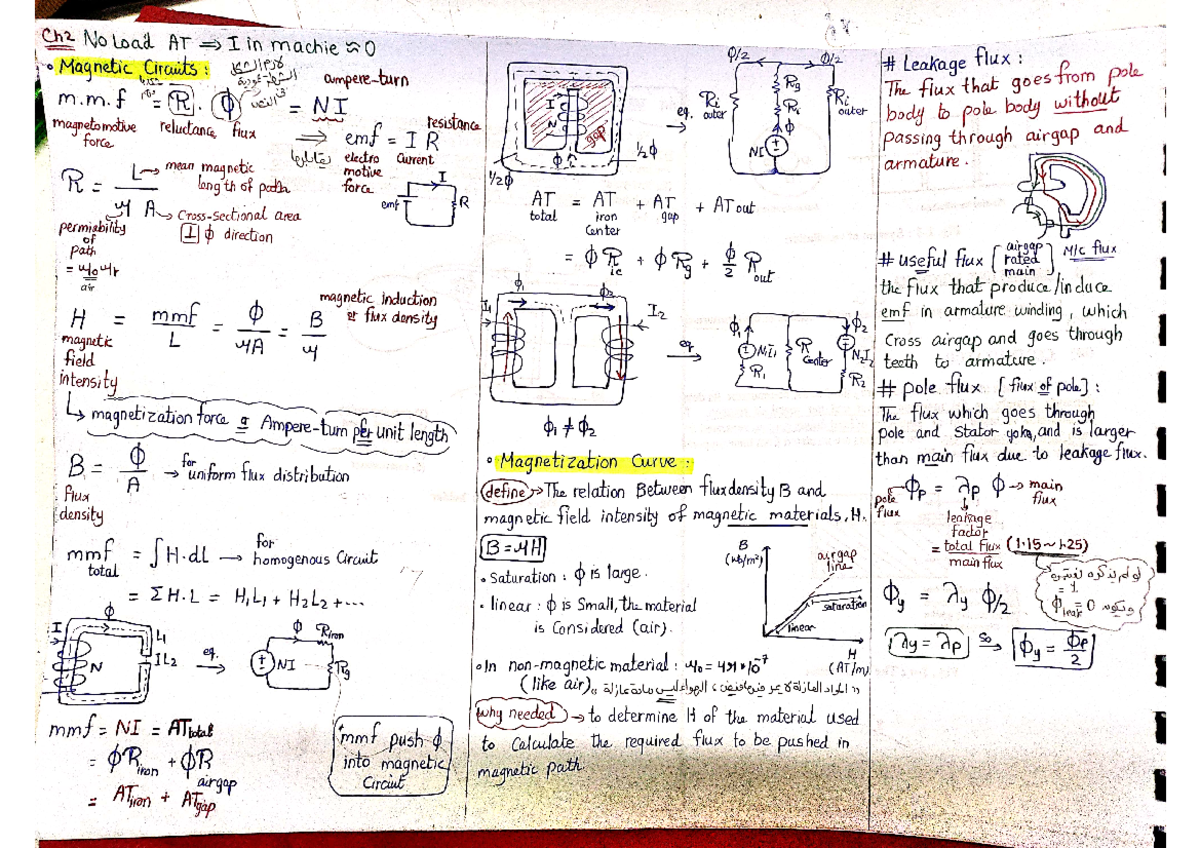 Ch2 No Load AT ⇒ I in machie ≈ 0
• Magnetic Circuits :
ampere-turn
m.m.f = R . Φ = NI
magnetomotive force
reluctance
flux
⇒ emf = I R
resistance
electro motive force
Current
I
emf
R
R = L / 4 A
L → mean magnetic length of path
A → Cross-sectional area
⊥ Φ direction
permiability of path
= 4o 4r
air
H = mmf / L = Φ / 4A = B / 4
magnetic induction or flux density
magnetic field intensity
↳ magnetization force or Ampere-turn per unit length
B = Φ / A → for uniform flux distribution
flux density
mmf total = ∫H.dL → for homogenous Circuit
= ΣH.L = H1L1 + H2L2 + ...
Φ
I
N
L1
IL2
eq.
Φ
Riron
NI
Rg
mmf = NI = ATtotal
= ΦRiron + ΦR airgap
= ATiron + ATgap
mmf push Φ
into magnetic
Circiut
I
N
gap
Φ
1/2Φ
1/2Φ
eq.
Φ/2
Φ/2
Rg
Ri
Φ
NI
Ri outer
Ri outer
AT total = AT iron Center + AT gap + AT out
= Φ R ic + Φ Rg + Φ/2 Rout
Φ1
Φ2
I1
I2
eq
Φ1
Φ2
N1I1
R1
R Center
N2I2
R2
Φ1 ≠ Φ2
• Magnetization Curve :
define → The relation Between flux density B and
magnetic field intensity of magnetic materials, H.
B = 4H
• Saturation : Φ is large.
• linear : Φ is Small, the material
is Considered (air).
B
(wb/m²)
airgap line
saturation
linear
H
(AT/m)
• In non-magnetic material : 4o = 4π*10⁻⁷
(like air)
why needed → to determine H of the material used
to Calculate the required flux to be pushed in
magnetic path
# Leakage flux :
The flux that goes from pole
body to pole body without
passing through airgap and
armature.
# useful flux [airgap rated main] M/c flux
the flux that produce/induce
emf in armature winding, which
Cross airgap and goes through
teeth to armature.
# pole flux [flux of pole] :
The flux which goes through
pole and Stator yoke, and is larger
than main flux due to leakage flux.
pole flux ← Φp = λp Φ → main flux
leakage factor
= total flux / main flux (1.15 ~ 1.25)
= 1
Φleak = 0
Φy = λy Φ/2
λy = λp so → Φy = Φp/2